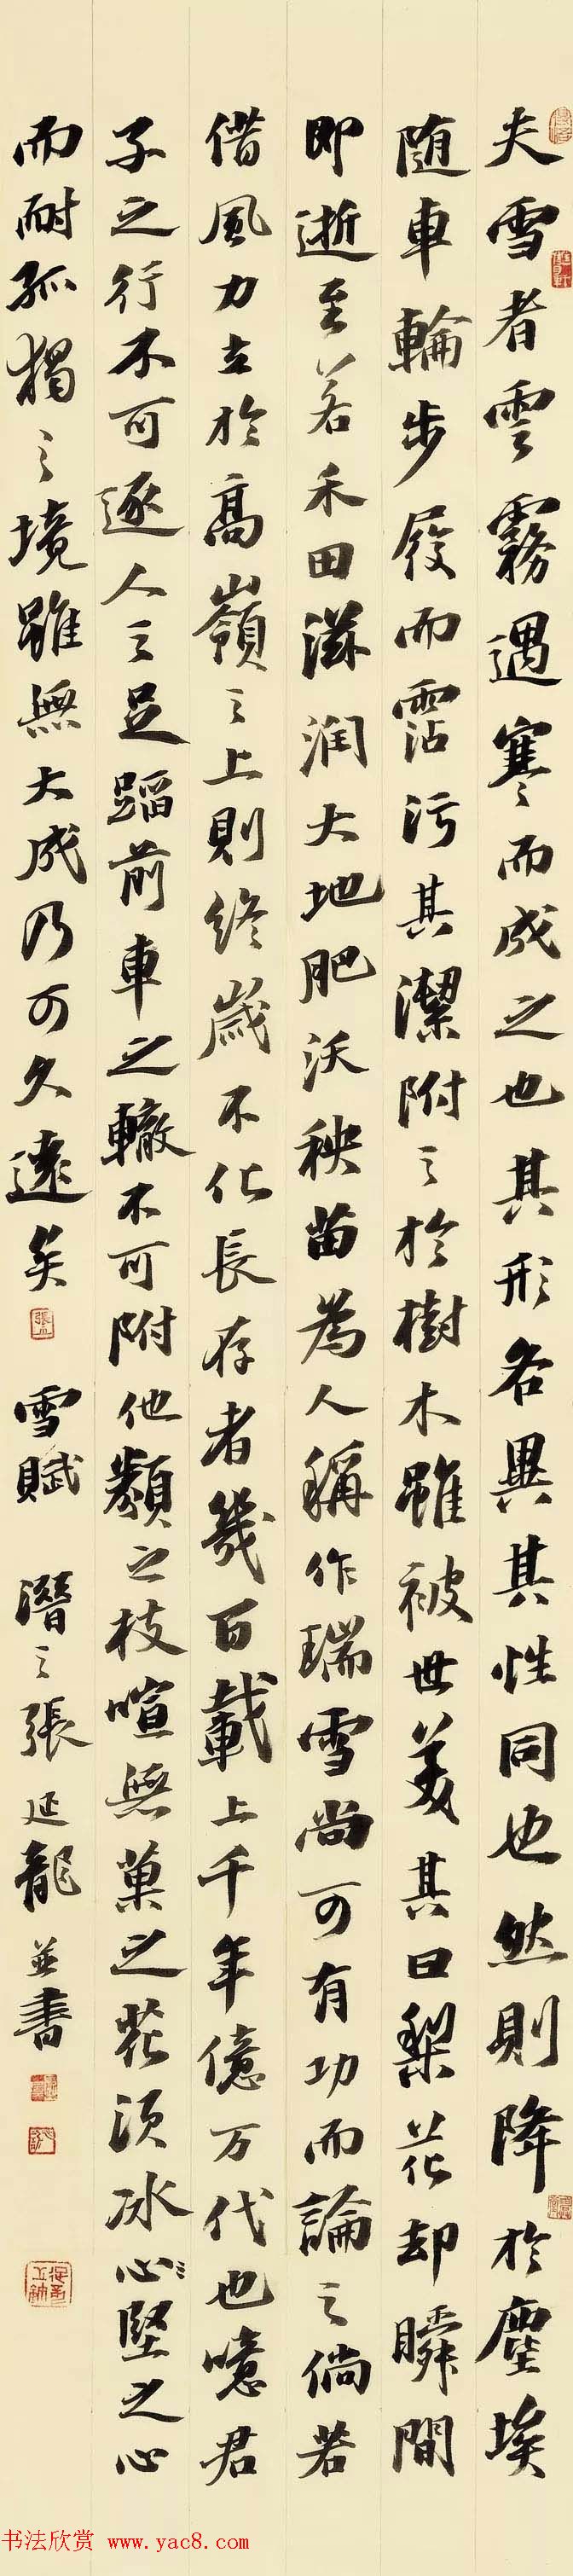 夫雪者雲霧遇寒而成之也其形各異其性同也然則降於塵埃
随車輪步履而霑污其潔附之於樹木雖被世美其曰梨花却瞬間
即逝至若禾田滋润大地肥沃秧苗為人稱作瑞雪尚可有功而論之倘若
借風力立於高嶺之上則終歲不化長存者幾百載上千年億万代也噫君
子之行不可逐人之足蹈前車之轍不可附他類之枝喧無菓之花須冰心堅之心
而耐孤獨之境雖無大成乃可久遠矣 雪賦 潛之張延龍並書
书法欣赏 www.yac8.com